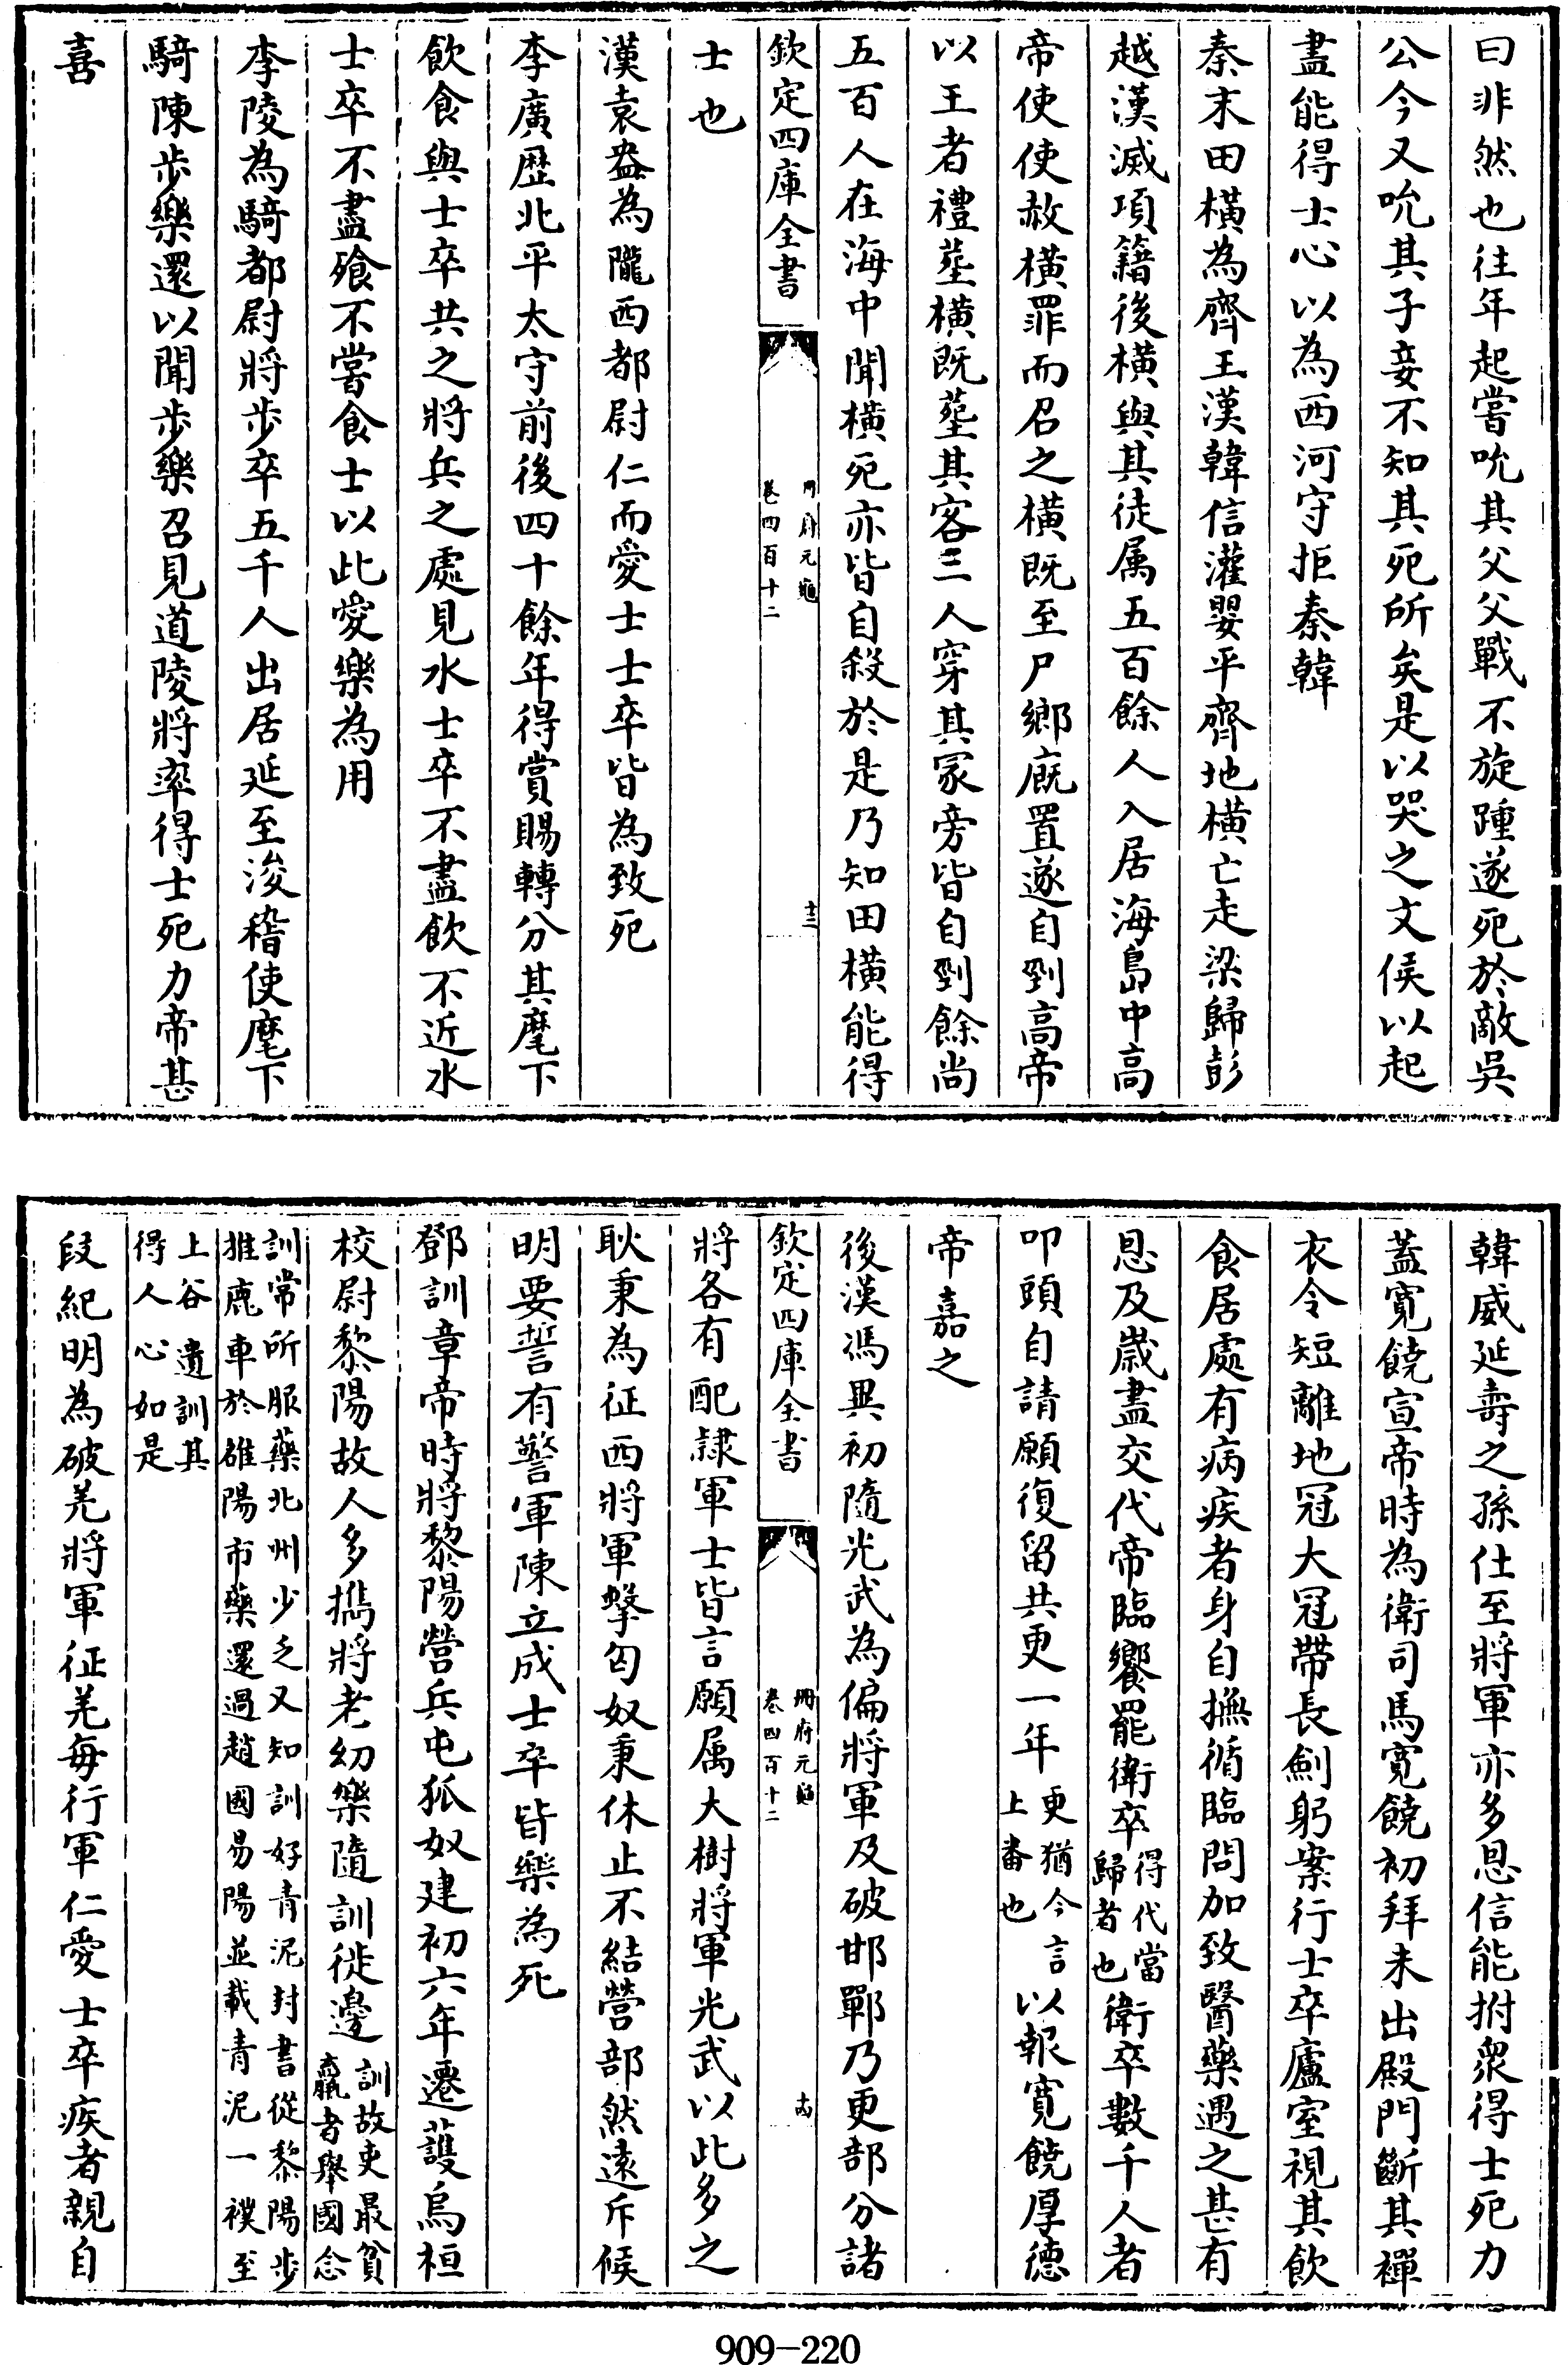 曰非然也往年起嘗吮其父父戰不旋踵遂死於敵吳
公今又吮其子妾不知其死所矣是以哭之文侯以起
盡能得士心以為西河守拒秦韓
秦末田橫為齊王漢韓信灌嬰平齊地橫亡走梁歸彭
越漢滅項籍後橫與其徒属五百餘人入居海島中高
帝使使赦橫罪而召之橫既至尸鄉廐置遂自剄高帝
以王者禮塟橫既塟其客三人穿其冢旁皆自剄餘尚
五百人在海中聞橫死亦皆自殺於是乃知田橫能得
欽定四庫全書
冊府元龜
卷四百十二
十三
士也
漢袁盎為隴西都尉仁而愛士士卒皆為致死
李廣歴北平太守前後四十餘年得賞賜轉分其麾下
飲食與士卒共之將兵之處見水士卒不盡飲不近水
士卒不盡飱不嘗食士以此愛樂為用
李陵為騎都尉將步卒五千人出居延至浚稽使麾下
騎陳步樂還以聞步樂召見道陵將率得士死力帝甚
喜
韓威延壽之孫仕至將軍亦多恩信能拊衆得士死力
蓋寛饒宣帝時為衛司馬寛饒初拜未出殿門斷其襌
衣令短離地冠大冠帶長劍躬案行士卒廬室視其飲
食居處有病疾者身自撫循臨問加致醫藥遇之甚有
恩及歲盡交代帝臨饗罷衛卒得代當歸者也衛卒數千人者
叩頭自請願復留共更一年更猶今言上番也以報寛饒厚徳
帝嘉之
後漢馮異初隨光武為偏將軍及破邯鄲乃更部分諸
欽定四庫全書
冊府元龜
卷四百十二
十四
將各有配隷軍士皆言願属大樹將軍光武以此多之
耿秉為征西將軍擊匈奴秉休止不結營部然遠斥候
明要誓有警軍陳立成士卒皆樂為死
鄧訓章帝時將黎陽營兵屯狐奴建初六年遷護烏桓
校尉黎陽故人多攜將老幼樂隨訓徙邊訓故吏最貧羸者舉國念
訓常所服藥北州少乏又知訓好青泥封書從黎陽步
推鹿車於雒陽市藥還過趙國易陽並載青泥一襆至
上谷遺訓其
得人心如是
段紀明為破羌將軍征羌每行軍仁愛士卒疾者親自
909-220